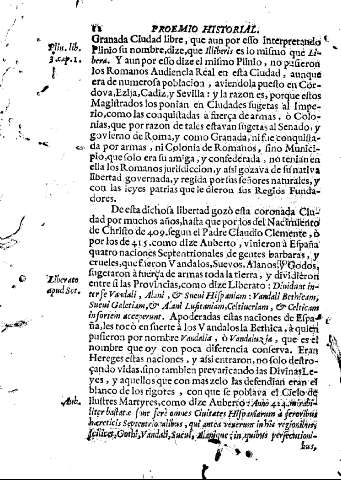 12 PROEMIO HISTORIAL.
Granada Ciudad libre, que aun por esso Interpretando
Plin. lib. 3. cap. 1.
Plinio su nombre, dize, que Illiberis es lo mismo que Li-
bera. Y aun por esso dize el mismo Plinio, no pusieron
los Romanos Audiencia Real en esta Ciudad, aunque
era de numerosa poblacion, aviendola puesto en Cor-
dova, Ezija, Cadiz, y Sevilla: y la razon es, porque estos
Magistrados los ponian en Ciudades sugetas al Impe-
rio, como las conquistadas à fuerça de armas, ò Colo-
nias, que por razon de tales estavan sugetas al Senado, y
govierno de Roma, y como Granada, ni fue conquista-
da por armas, ni Colonia de Romanos, sino Munici-
pio, que solo era su amiga, y confederada, no tenian en
ella los Romanos jurisdiccion, y assi gozava de su nativa
libertad governada, y regida por sus señores naturales, y
con las leyes patrias que le dieron sus Regios Funda-
dores.
De esta dichosa libertad gozò esta coronada Ciu-
dad por muchos años, hasta que por los del Nacimiento
de Christo de 409. segun el Padre Claudio Clemente, ò
por los de 415. como dize Auberto, vinieron à España
quatro naciones Septentrionales de gentes barbaras, y
crueles, que fueron Vandalos, Suevos, Alanos, y Godos,
sugetaron à fuerça de armas toda la tierra, y dividieron
Liberato apud Sot.
entre si las Provincias, como dize Liberato: Dividunt in-
ter se Vandali, Alani, & Suevi Hispaniam: Vandali Bethicam,
Suevi Galetiam, & Alani Lusitaniam, Celtiberiam, & Celticam
insortem acceperunt. Apoderadas estas naciones de Espa-
ña, les tocò en suerte à los Vandalos la Bethica, à quien
pusieron por nombre Vandalia, ò Vandaluzia, que es el
nombre que oy con poca diferencia conserva. Eran
Hereges estas naciones, y assi entraron, no solo destro-
çando vidas, sino tambien prevaricando las Divinas Le-
yes, y aquellos que con mas zelo las defendian eran el
blanco de los rigores, con que se poblava el Cielo de
Aub.
Ilustres Martyres, como dize Auberto: Anno 424. mirabi-
liter
omnes Civitates Hispaniarum à ferocibus
hæreticis Septentrionalibus, qui antea venerunt in his regionibus
scilicet, Gothi, Vandali, Suevi, Alanique: in quibus persecutioni-
bus,